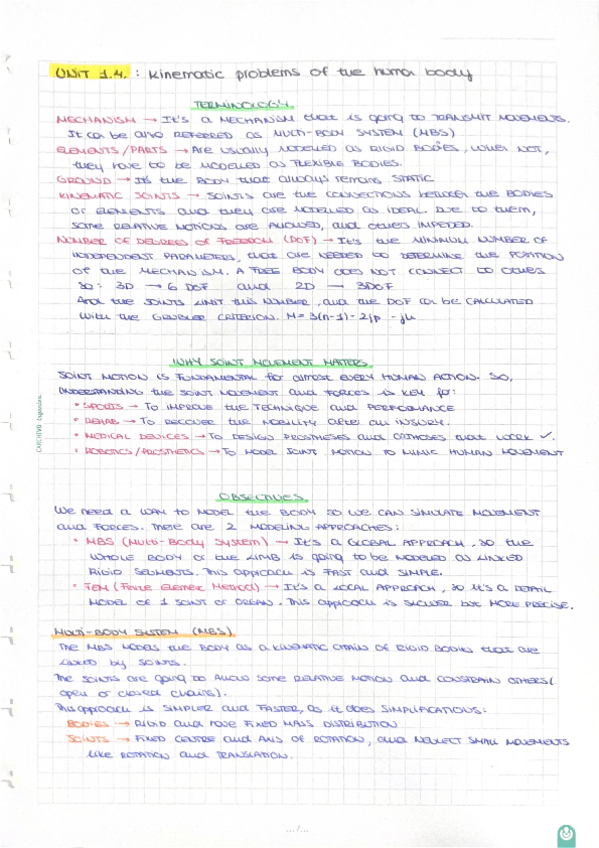 UNIT 1.4. : Kinematic problems of the huma body
TERMINOLOGY
MECHANISM → It's a MECHANISM that is going to TRANSMIT MOVEMENTS.
It can be also REFERRED as MULTI-BODY SYSTEM (MBS)
ELEMENTS/PARTS → Are usually MODELED as RIGID BODIES, when NOT,
they have to be MODELED as FLEXIBLE BODIES.
GROUND → It's the BODY that always remains STATIC
KINEMATIC JOINTS → JOINTS are the CONNECTIONS between the BODIES
or ELEMENTS and they are MODELED as IDEAL. Due to them,
some RELATIVE MOTIONS are ALLOWED, and others IMPEDED.
NUMBER OF DEGREES OF FREEDOM (DOF) → It's the MINIMUM NUMBER OF
INDEPENDENT PARAMETERS, that are NEEDED to DETERMINE the POSITION
of the MECHANISM. A FREE BODY DOES NOT CONNECT to others
so: 3D → 6 DOF and 2D → 3DOF
And the JOINTS LIMIT this NUMBER, and the DOF can be CALCULATED
with the GRUBLER CRITERION. M = 3(n-1) - 2jp - jh
WHY JOINT MOVEMENT MATTERS
JOINT MOTION is FUNDAMENTAL for almost EVERY HUMAN ACTION. SO,
UNDERSTANDING the JOINT MOVEMENT and FORCES is KEY for:
• SPORTS → To IMPROVE the TECHNIQUE and PERFORMANCE
• REHAB → To RECOVER the MOBILITY after an INJURY.
• MEDICAL DEVICES → To DESIGN PROSTHESES and ORTHOSES that WORK ✓.
• ROBOTICS/PROSTHETICS → To MODEL JOINT MOTION to MIMIC HUMAN MOVEMENT
OBJECTIVES
We need a WAY to MODEL the BODY so we CAN SIMULATE MOVEMENT
and FORCES. There are 2 MODELING APPROACHES:
• MBS (Multi-Body System) → It's a GLOBAL APPROACH, so the
WHOLE BODY or the LIMB is going to be MODELED as LINKED
RIGID SEGMENTS. This approach is FAST and SIMPLE.
• FEM (Finite Element Method) → It's a LOCAL APPROACH, so it's a DETAIL
MODEL OF 1 JOINT OR ORGAN. This approach is SLOWER but MORE PRECISE.
MULTI-BODY SYSTEM (MBS)
The MBS MODELS the BODY as a KINEMATIC CHAIN of RIGID BODIES that are
LINKED by JOINTS.
The JOINTS are going to ALLOW some RELATIVE MOTION and CONSTRAIN OTHERS (
open or closed chains).
This approach is SIMPLER and FASTER, as it does SIMPLIFICATIONS:
BODIES → RIGID and have FIXED MASS DISTRIBUTION
JOINTS → FIXED CENTRE and AXIS OF ROTATION, and NEGLECT SMALL MOVEMENTS
like ROTATION and TRANSLATION.
.../...